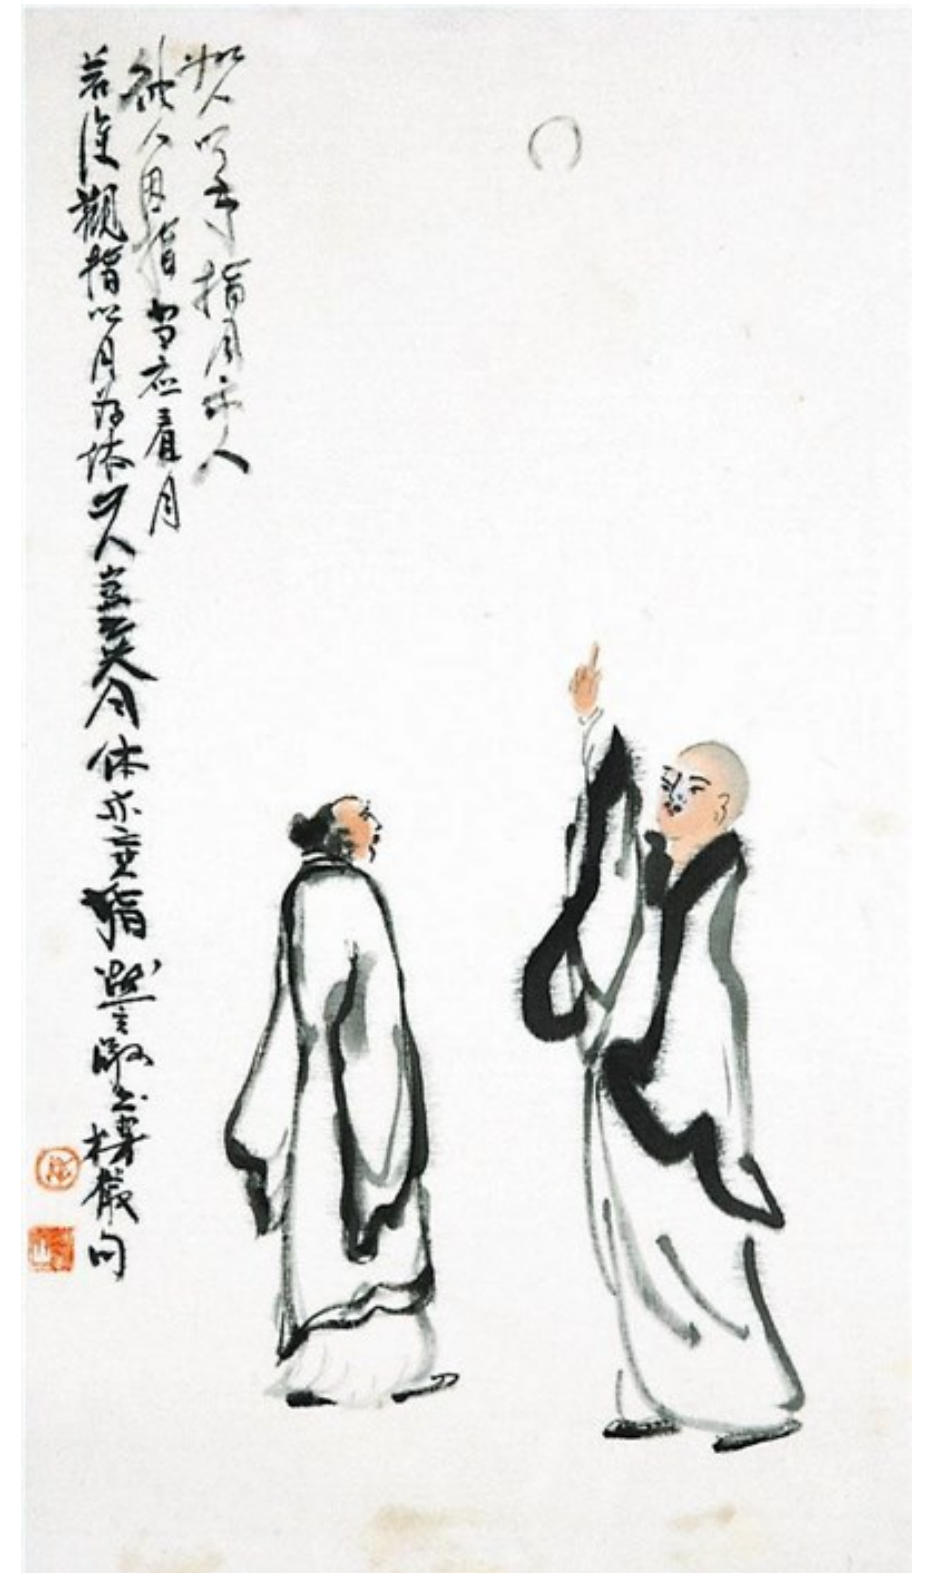 如人以手指月示人
彼人因指當應看月
若復觀指以月為体此人豈亡失月体亦亡指書楞嚴句